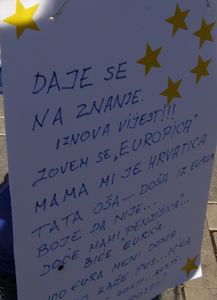 DAJE SE
NA ZNANJE.
IZNOVA VIJEST!!!
ZOVEM SE „EUROPICA"
MAMA MI JE HRVATICA
TATA OŠA— DOŠA IZ EUROPA
BOJE DA NIJE...
DOĆE MAMI „PENZIJICA"...
BIĆE EURICA.
100 EURA MENI DOSTA
KAŽE